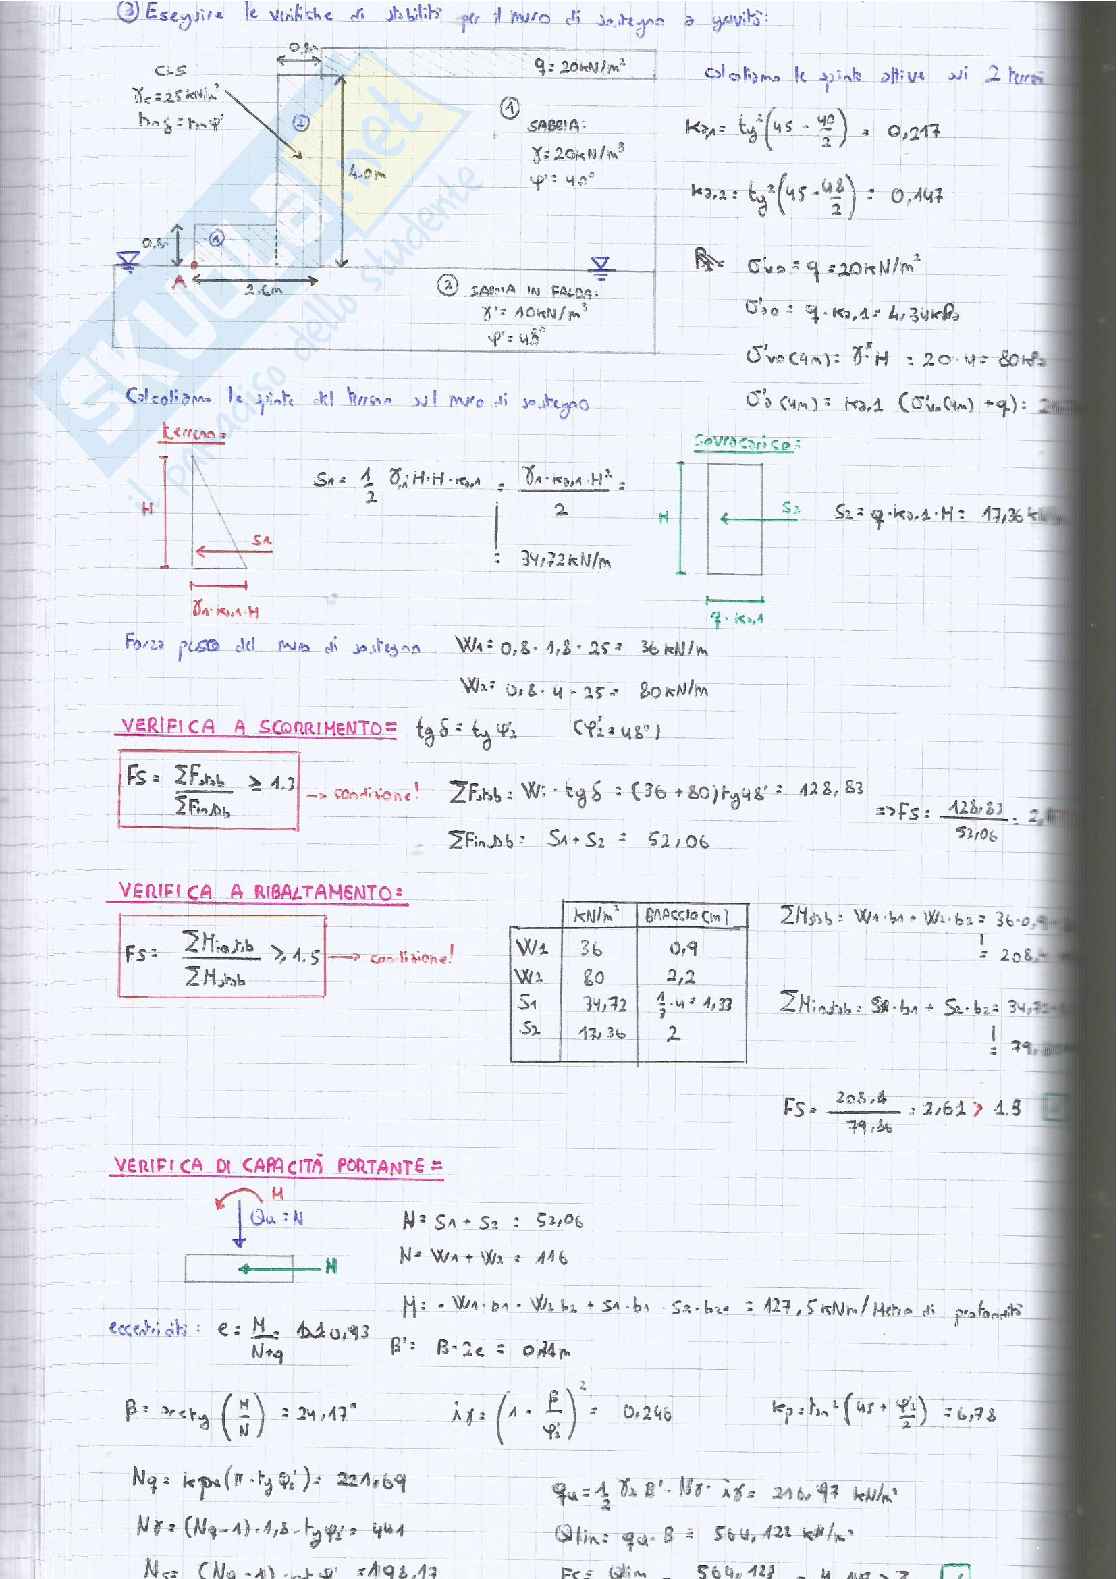 ③ Eseguire le verifiche di stabilità per il muro di sostegno a gravità:
0.8m
CLS
γc=25kN/m³
tgδ=tgφ'
q=20kN/m²
Calcoliamo le spinte attive sui 2 terreni
①
SABBIA:
γ=20kN/m³
φ'=40°
②
4.0m
ka,1= tg²(45 - 40/2) = 0,217
ka,2= tg²(45 - 48/2) = 0,147
0.8m
①
A
2.6m
② SABBIA IN FALDA:
γ'=10kN/m³
φ'=48°
σ'v0 = q = 20kN/m²
σ'a0 = q·ka,1 = 4,34kPa
σ'v0(4m) = γ·H = 20·4 = 80kPa
σ'a(4m) = ka,1 (σ'v0(4m)+q):
Calcoliamo le spinte del terreno sul muro di sostegno
terreno:
H
S1
γ1·ka,1·H
S1= 1/2 γ1·H·H·ka,1 = γ1·ka,1·H²/2 =
= 34,72kN/m
sovraccarico:
H
S2
q·ka,1
S2= q·ka,1·H= 17,36
Forza peso del muro di sostegno W1= 0,8·1,8·25= 36 kN/m
W2= 0,8·4·25= 80kN/m
VERIFICA A SCORRIMENTO= tgδ= tgφ'2 (φ'2=48°)
FS= ΣFstab/ΣFinstab ≥ 1.3 → condizione!
ΣFstab= Wi·tgδ = (36+80)tg48° = 128,83
ΣFinstab= S1+S2 = 52,06
=>FS= 128,83/52,06
VERIFICA A RIBALTAMENTO=
FS= ΣMinstab/ΣMstab ≥ 1.5 → condizione!
kN/m² BRACCIO(m)
W1 36 0,9
W2 80 2,2
S1 34,72 1/3·4=1,33
S2 17,36 2
ΣMstab= W1·b1+W2·b2= 36·0,9
= 208,
ΣMinstab= S1·b1 + S2·b2= 34,72
= 79,
FS= 208,4/79,36 = 2,61 > 1.5
VERIFICA DI CAPACITÀ PORTANTE=
M
Qu=N
H
N= S1+S2 = 52,06
N= W1+W2 = 116
M= -W1·b1 - W2b2 + S1·b1 · S2·b2= = 127,5kNm/Metro di profondità
eccentricità: e= M/N+q 0,93
B'= B-2e = 0,74m
β= arctg (H/N) = 24,17°
iγ= (1 - β/φ'2)² = 0,246
kp=tan²(45+φ'2/2) =6,78
Nq= kp·e(π·tgφ'2)= 221,69
Nγ= (Nq-1)·1,8·tgφ'2= 441
qu= 1/2 γ2 B'·Nγ·iγ= 216,97 kN/m²
Qlim= qu·B = 564,122 kN/m²